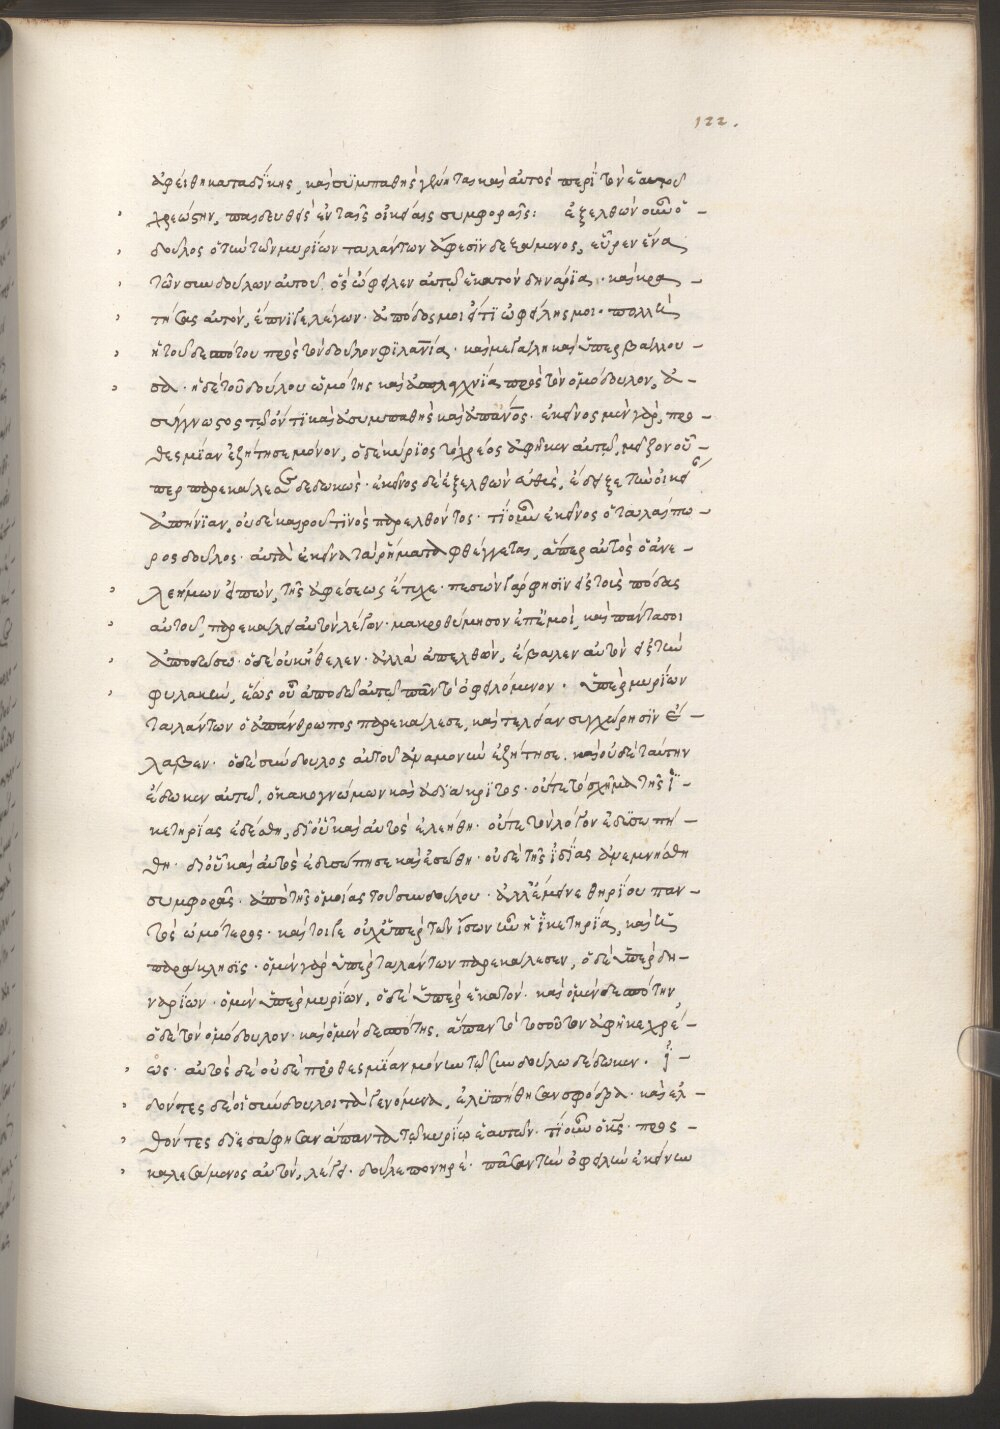 122.
ἀφέιθη καταδίκης, καὶ συμπαθὴς γένηται καὶ αὐτὸς περὶ τὸν ἑαυτοῦ
χρεώστην, παιδευθεὶς ἐν ταῖς οἰκείαις συμφοραῖς: ἐξελθὼν οὖν ὁ
δοῦλος ὁ τὴν τῶν μυρίων ταλάντων ἄφεσιν δεξάμενος, εὗρεν ἕνα
τῶν συνδούλων αὐτοῦ, ὃς ὤφειλεν αὐτῷ ἑκατὸν δηνάρια · καὶ κρα
τήσας αὐτὸν, ἔπνιγε λέγων · ἀπόδος μοι εἴ τι ὠφείλης μοι · πολλὴ
ἡ τοῦ δεσπότου πρὸς τὸν δοῦλον φιλανία · καὶ μεγάλη καὶ ὑπερβάλλου
σα · ἡ δὲ τοῦ δούλου ὠμότης καὶ ἀσπλαχνία πρὸς τὸν ὁμόδουλον, ἀ
σύγνωστος τῷ ὄντι καὶ ἀσυμπαθὴς καὶ ἀπάνος · ἐκεῖνος μὲν γὰρ, προ
θεσμίαν ἐξήτησε μόνον, ὁ δὲ κύριος τὸ χρέος ἀφῆκεν αὐτῷ, μεῖζον οὗ
περ παρεκάλεσε δεδωκώς · ἐκεῖνος δὲ ἐξελθὼν εὐθὺς, ἔδειξε τὴν οἰκεί
ἀπήνϊαν, οὐδὲ καιροῦ τινὸς παρελθόντος · τί οὖν ἐκεῖνος ὁ ταλαίπω
ρος δοῦλος · αὐτὰ ἐκεῖνα τὰ ῥήματα φθέγγεται, ἅπερ αὐτὸς ὁ ἀνε
λεήμων εἰπὼν, τῆς ἀφέσεως ἔτυχε · πεσὼν γάρ φησιν εἰς τοὺς πόδας
αὐτοῦ, παρεκάλει αὐτὸν λέγων · μακροθύμησον ἐπ' ἐμοὶ, καὶ πάντα σοι
ἀποδώσω · ὁ δὲ οὐκ ἤθελεν · ἀλλὰ ἀπελθὼν, ἔβαλεν αὐτὸν εἰς τὴν
φυλακὴν, ἕως οὗ ἀποδῷ αὐτῷ πᾶν τὸ ὀφειλόμενον · ὑπὲρ μυρίων
ταλάντων ὁ ἀπάνθρωπος παρεκάλεσε, καὶ τελείαν συγχώρησιν ἔ
λαβεν · ὁ δὲ σύνδουλος αὐτοῦ ἀναμονὴν ἐξήτησε · καὶ οὐδὲ ταύτην
ἔδωκεν αὐτῷ, ὁ κακογνώμων καὶ ἀδιάκριτος · οὔτε τὸ σχῆμα τῆς ἱ
κετηρίας ἐδέσθη, δι' οὗ καὶ αὐτὸς ἐλεήθη · οὔτε τὸν λόγον ἐδυσωπή
θη · δι' οὗ καὶ αὐτὸς ἐδυσώπησε καὶ ἐσώθη · οὐδὲ τῆς ἰδίας ἀνεμνήσθη
συμφορᾶς · ἀπὸ τῆς ὁμοίας τοῦ συνδούλου · ἀλλ' ἔμεινε θηρίου παν
τὸς ὠμότερος · καίτοιγε οὐχ' ὑπὲρ τῶν ἴσων ἦν ἡ ἱκετηρία, καὶ ἡ
παράκλησις · ὁ μὲν γὰρ ὑπὲρ ταλάντων παρεκάλεσεν, ὁ δὲ ὑπὲρ δη
ναρίων · ὁ μὲν ὑπὲρ μυρίων, ὁ δὲ ὑπὲρ ἑκατόν · καὶ ὁ μὲν δεσπότην,
ὁ δὲ τὸν ὁμόδουλον · καὶ ὁ μὲν δεσπότης, ἅπαν τὸ τοσοῦτον ἀφῆκε χρέ
ος · αὐτὸς δὲ οὐδὲ προθεσμίαν μόνην τῷ συνδούλῳ δέδωκεν · ἰ
δόντες δὲ οἱ σύνδουλοι τὰ γενόμενα, ἐλυπήθησαν σφόδρα · καὶ ἐλ
θόντες διεσάφησαν ἅπαντα τῷ κυρίῳ ἑαυτῶν · τί οὖν ὁ κς · προς
καλεσάμενος αὐτὸν, λέγει · δοῦλε πονηρέ · πᾶσαν τὴν ὀφειλὴν ἐκείνην